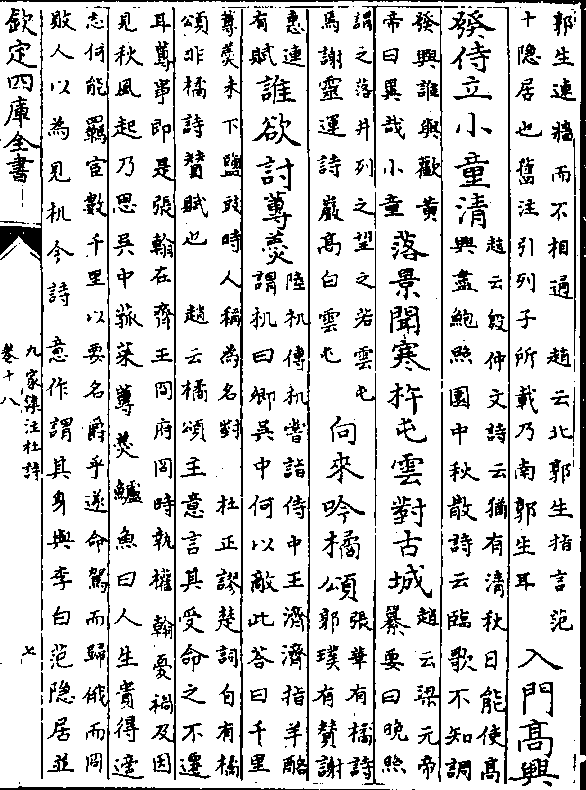 郭生連牆而不相通　趙云北郭生指言范
十隠居也舊注引列子所載乃南郭生耳
入門髙興
發侍立小童清
趙云殷仲文詩云獨有清秋日能使髙
興盡鮑照園中秋散詩云臨歌不知調
發興誰與歡黄
帝曰異哉小童
落景聞寒杵屯雲對古城
趙云梁元帝
纂要曰晚照
謂之落井列之望之若雲屯
馬謝靈運詩巖髙白雲屯
向來吟橘頌
張華有橘詩
郭璞有賛謝
惠連
有賦
誰欲討蓴羮
陸机傳机嘗詣侍中王濟濟指羊酪
謂机曰卿吳中何以敵此答曰千里
蓴羮未下鹽豉時人稱為名對　杜正謬楚詞自有橘
頌非橘詩賛賦也　趙云橘頌主意言其受命之不遷
耳蓴事即是張翰在齊王冏府冏時執權翰憂禍及因
見秋風起乃思吳中菰菜蓴羮鱸魚曰人生貴得適
志何能羈宦數千里以要名爵乎遂命駕而歸俄而冏
敗人以為見机今詩意作謂其身與李白范隠居並
欽定四庫全書
九家集注杜詩
卷十八
七